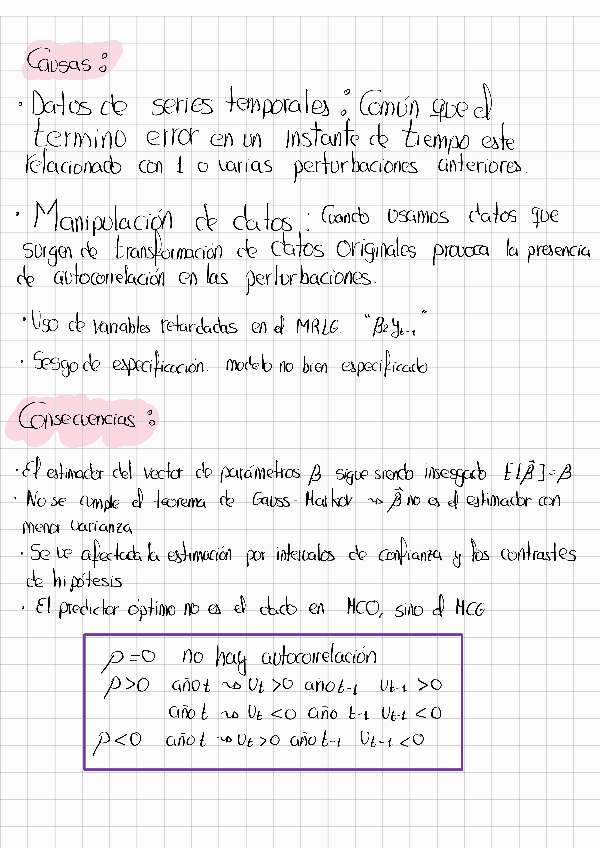 Causas :
· Datos de series temporales : Común que el
termino error en un instante de tiempo este
relacionado con 1 o varias perturbaciones anteriores.
· Manipulación de datos : Cuando usamos datos que
surgen de transformación de datos originales provoca la presencia
de autocorrelación en las perturbaciones.
· Uso de variables retardadas en el MRLG. "β₂yₜ₋₁"
· Sesgo de especificación. modelo no bien especificado
Consecuencias :
· El estimador del vector de parámetros β sigue siendo insesgado E[β̂]=β
· No se cumple el teorema de Gauss-Markov ⇝ β̂ no es el estimador con
menor varianza
· Se ve afectada la estimación por intervalos de confianza y los contrastes
de hipótesis
· El predictor óptimo no es el dado en MCO, sino el MCG
ρ=0 no hay autocorrelación
ρ>0 año t ⇝ Uₜ>0 año t-1 Uₜ₋₁>0
año t ⇝ Uₜ<0 año t-1 Uₜ₋₁<0
ρ<0 año t ⇝ Uₜ>0 año t-1 Uₜ₋₁<0